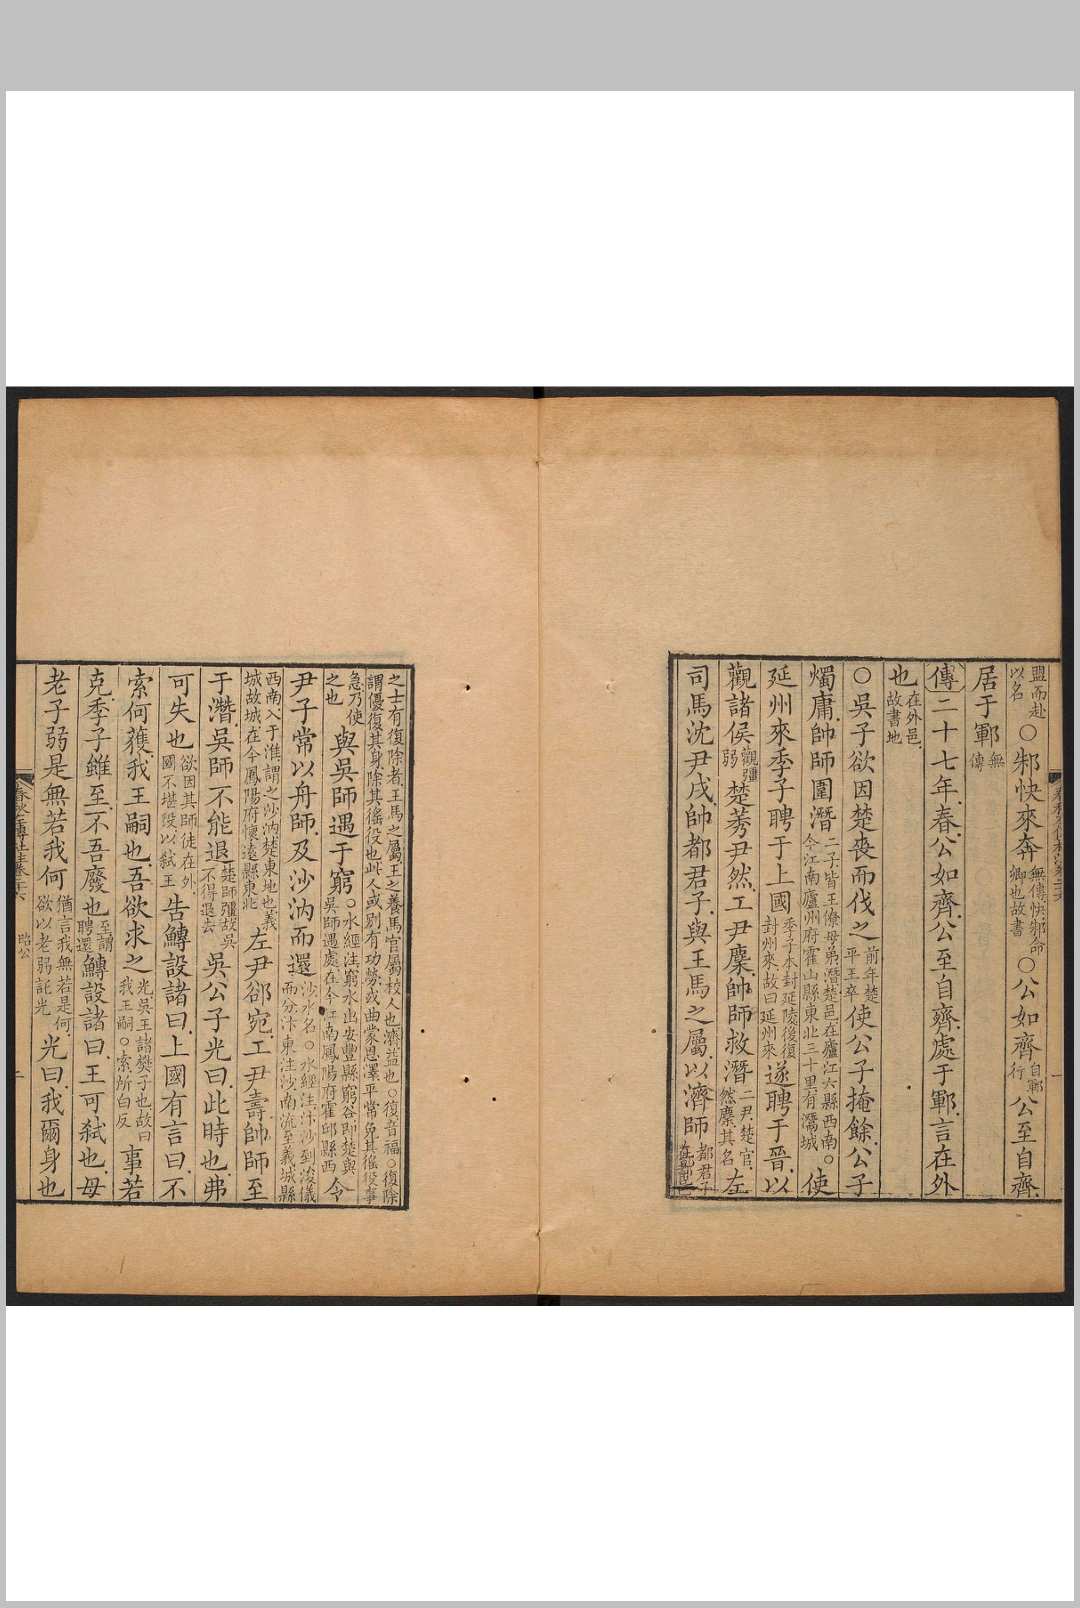 盟而赴以名○邾快來奔無傳快邾命卿也故書○公如齊自鄆行公至自齊
居于鄆無傳
傳二十七年春公如齊公至自齊處于鄆言在外
也在外邑故書地
○吳子欲因楚喪而伐之前年楚平王卒使公子掩餘公子
燭庸帥師圍潛二子皆王僚母弟潛楚邑在廬江六縣西南○今江南廬州府霍山縣東北三十里有灊城使
延州來季子聘于上國季子本封延陵後復封州來故曰延州來遂聘于晉以
觀諸侯觀彊弱楚莠尹然工尹麇帥師救潛二尹楚官然麇其名左
司馬沈尹戌帥都君子與王馬之屬以濟師都君子
之士有復除者王馬之屬王之養馬官屬校人也濟益也○復音福○復除謂優復其身除其徭役也此人或別有功勞或曲蒙恩澤平常免其徭役事
急乃使之也與吳師遇于窮○水經注窮水出安豐縣窮谷即楚與吳師遇處在今江南鳳陽府霍邱縣西令
尹子常以舟師及沙汭而還沙水名○水經注汴沙到浚儀而分汴東注沙南流至義城縣
西南入于淮謂之沙汭楚東地也義城故城在今鳳陽府懷遠縣東北左尹郤宛工尹壽帥師至
于潛吳師不能退楚師彊故吳不得退去吳公子光曰此時也弗
可失也欲因其師徒在外國不堪役以弒王告鱄設諸曰上國有言曰不
索何獲我王嗣也吾欲求之光吳王諸樊子也故曰我王嗣○索所白反事若
克季子雖至不吾廢也至謂聘還鱄設諸曰王可弒也母
老子弱是無若我何猶言我無若是何欲以老弱託光光曰我爾身也
春秋左傳杜注卷二十六
昭公